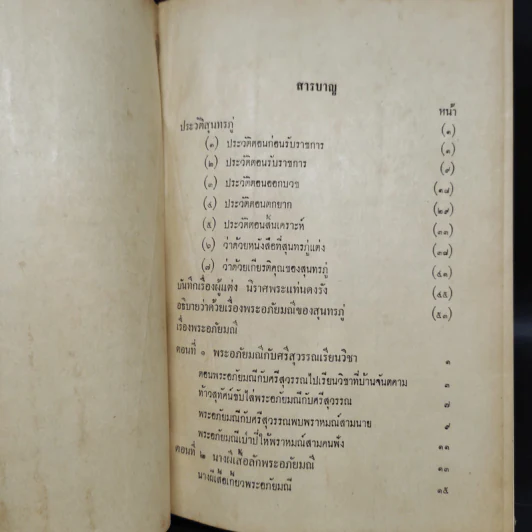 สารบาญ
หน้า
ประวัติสุนทรภู่ (๑)
(๑) ประวัติตอนก่อนรับราชการ (๑)
(๒) ประวัติตอนรับราชการ (๙)
(๓) ประวัติตอนออกบวช (๑๘)
(๔) ประวัติตอนตกยาก (๒๙)
(๕) ประวัติตอนสิ้นเคราะห์ (๓๓)
(๖) ว่าด้วยหนังสือที่สุนทรภู่แต่ง (๓๗)
(๗) ว่าด้วยเกียรติคุณของสุนทรภู่ (๔๑)
บันทึกเรื่องผู้แต่ง นิราศพระแท่นดงรัง (๔๕)
อธิบายว่าด้วยเรื่องพระอภัยมณีของสุนทรภู่ (๕๓)
เรื่องพระอภัยมณี
ตอนที่ ๑ พระอภัยมณีกับศรีสุวรรณเรียนวิชา ๑
ตอนพระอภัยมณีกับศรีสุวรรณไปเรียนวิชาที่บ้านจันตคาม ๓
ท้าวสุทัศน์ขับไล่พระอภัยมณีกับศรีสุวรรณ ๗
พระอภัยมณีกับศรีสุวรรณพบพราหมณ์สามนาย ๙
พระอภัยมณีเป่าปี่ให้พราหมณ์สามคนฟัง ๑๑
ตอนที่ ๒ นางผีเสื้อลักพระอภัยมณี ๑๓
นางผีเสื้อเกี้ยวพระอภัยมณี ๑๕